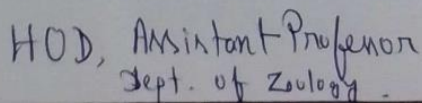 HOD, Assistant Professor
Dept. of Zoology.